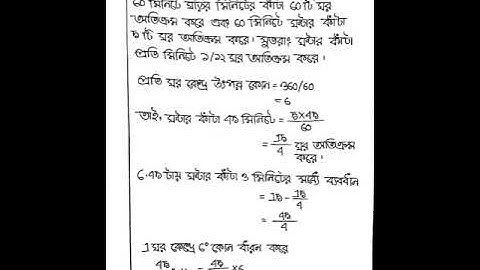 60 মিনিটে ঘড়ির মিনিটের কাঁটা 60 টি ঘর
অতিক্রম করে এবং 60 মিনিটে ঘন্টার কাঁটা
৫ টি ঘর অতিক্রম করে। সুতরাং ঘন্টার কাঁটা
প্রতি মিনিটে ১/১২ ঘর অতিক্রম করে।
প্রতি ঘর কেন্দ্রে উৎপন্ন কোন = 360/60
= 6
তাই, ঘন্টার কাঁটা 4৫ মিনিটে = ৫×4৫/60
= 1৫/4 ঘর অতিক্রম করে।
6.4৫ টায় ঘন্টার কাঁটা ও মিনিটের মধ্যে ব্যবধান
= 1৫ - 1৫/4
= 4৫/4
1 ঘর কেন্দ্রে 6° কোন ধারন করে
= 4৫/4 ×6